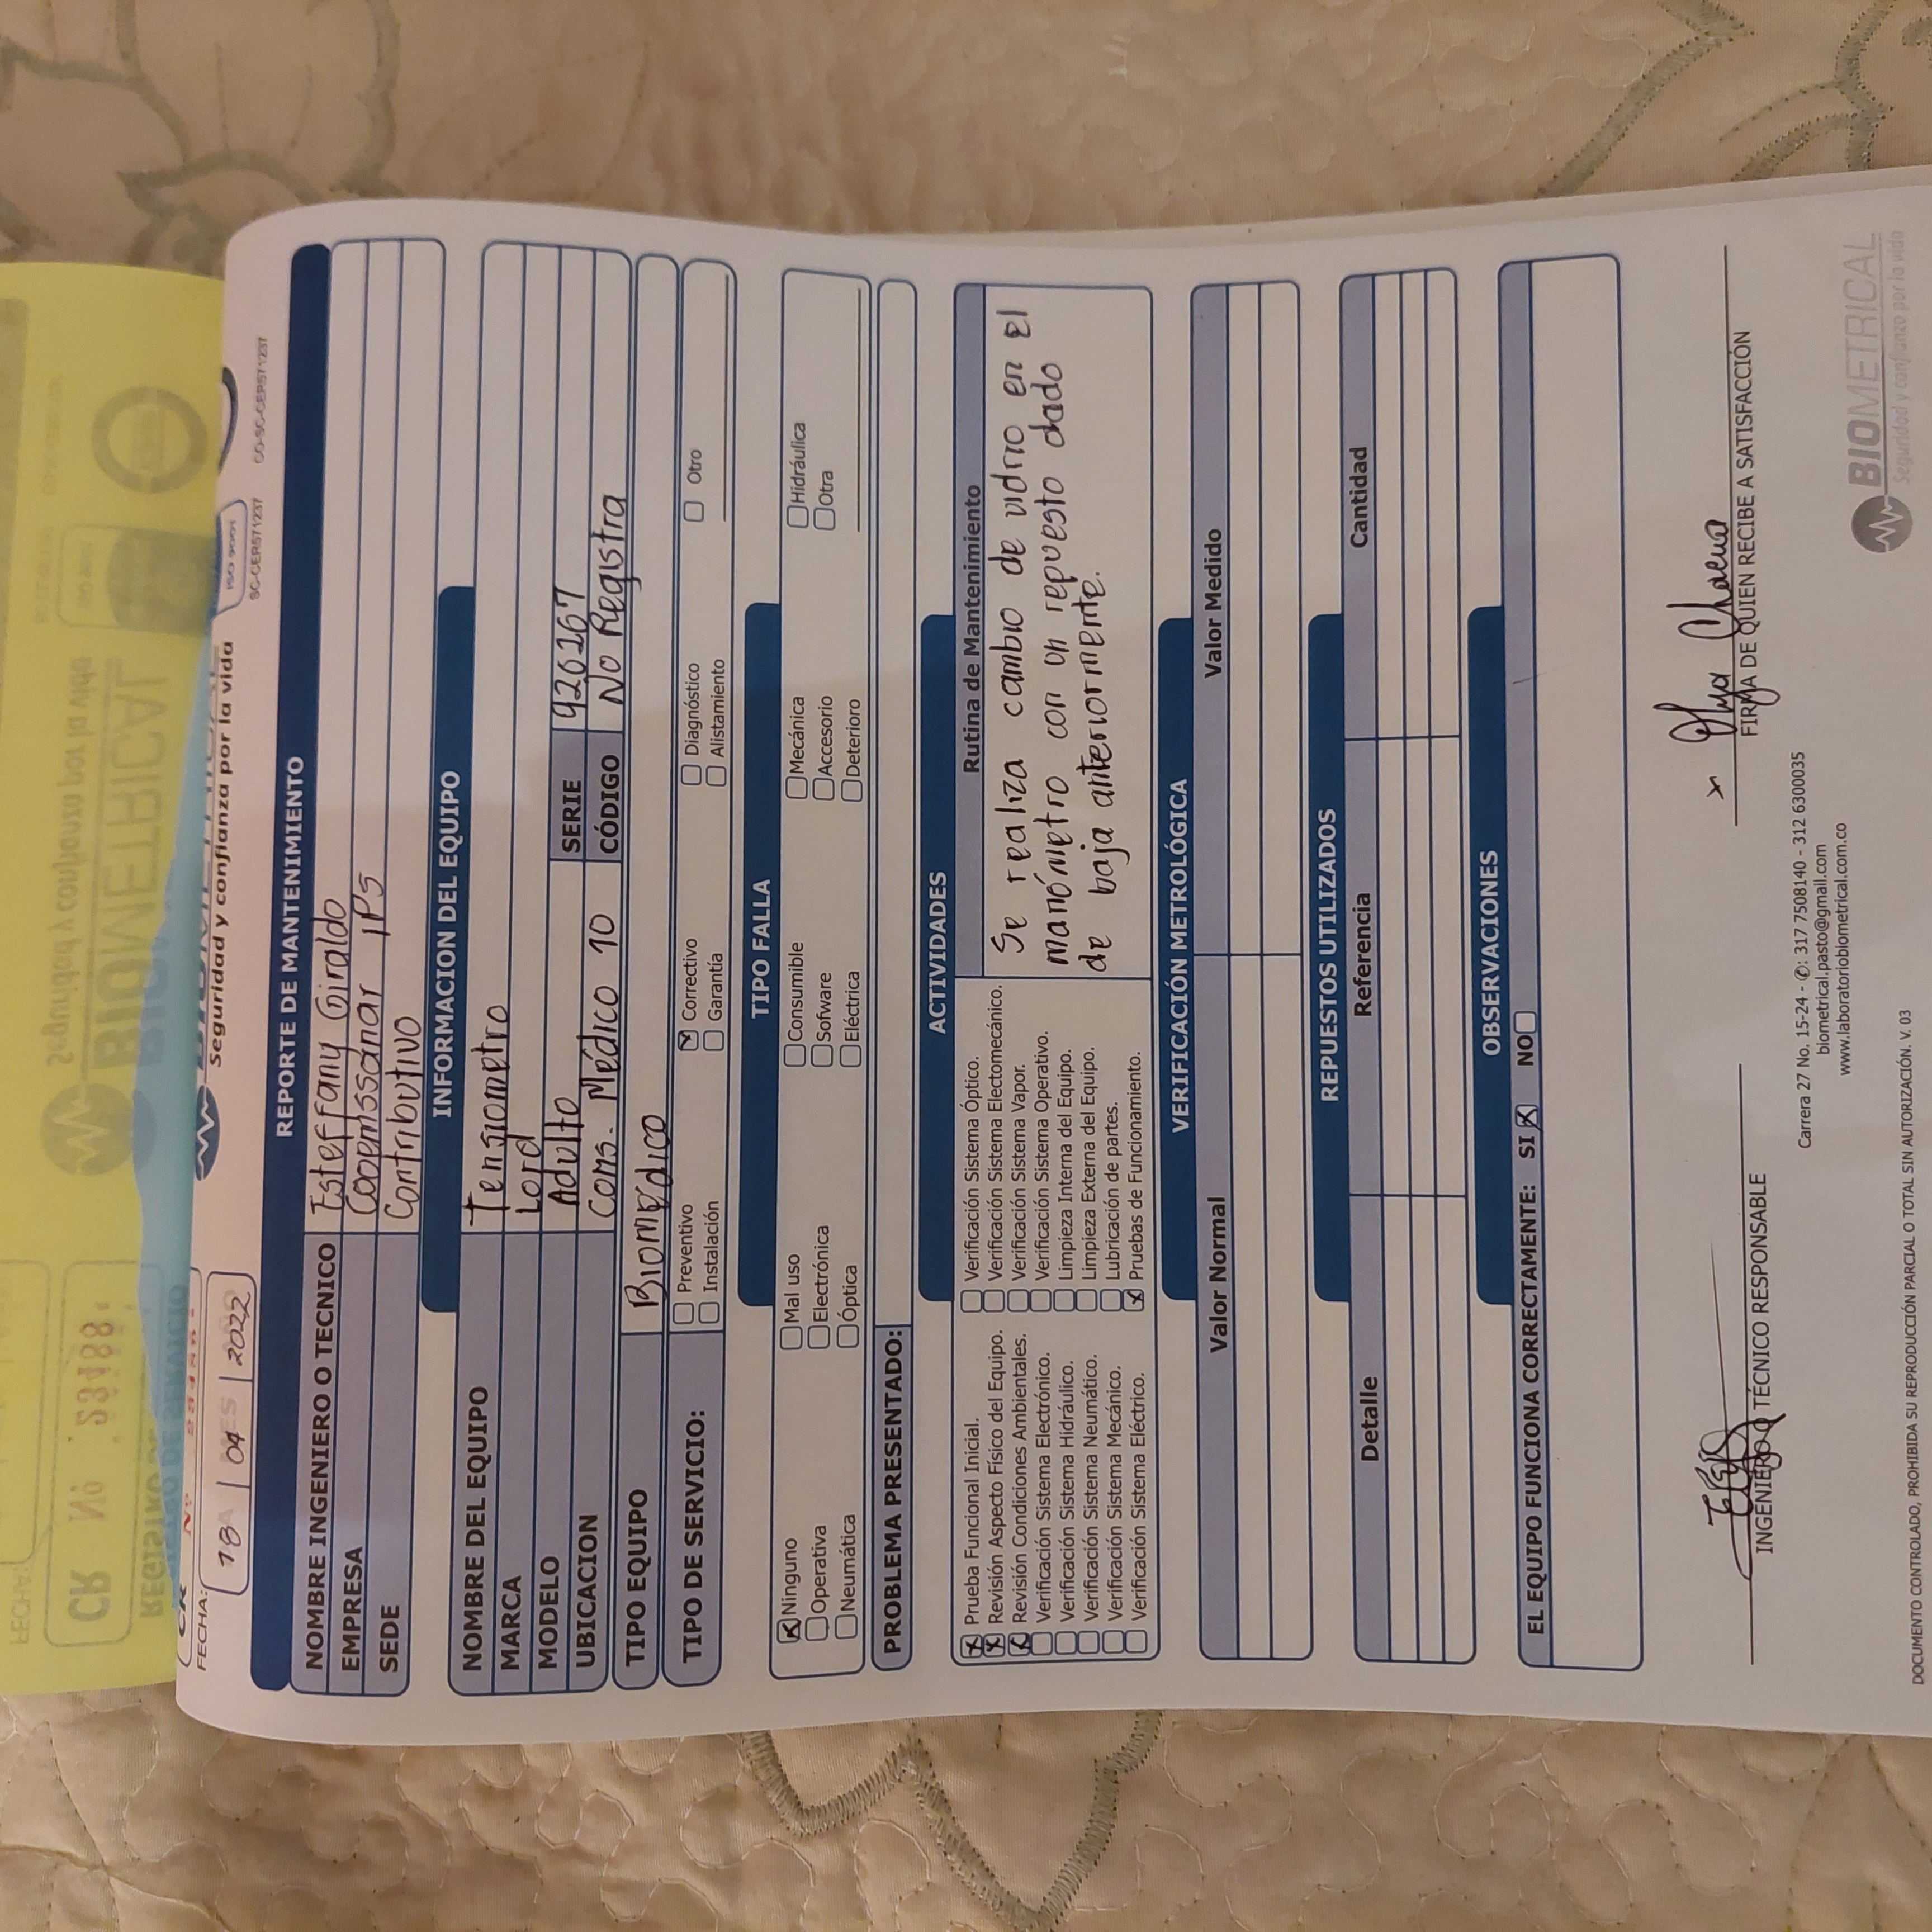 FECHA:
CR Nº 23488
REGISTRO DE SERVICIO
BIOMETRICAL
Seguridad y confianza por la vida
ISO 9001
CR Nº
FECHA: 18 04 2022
Seguridad y confianza por la vida
ISO 9001
SC-CER571237
CO-SC-CER571237
REPORTE DE MANTENIMIENTO
NOMBRE INGENIERO O TECNICO Esteffany Giraldo
EMPRESA Coopmssanar IPS
SEDE Contributivo
INFORMACION DEL EQUIPO
NOMBRE DEL EQUIPO Tensiometro
MARCA Lord
MODELO Adulto SERIE 926267
UBICACION Cons. Médico 10 CÓDIGO No Registra
TIPO EQUIPO Biomédico
TIPO DE SERVICIO: Preventivo Correctivo Diagnóstico Otro
Instalación Garantía Alistamiento
TIPO FALLA
Ninguno Mal uso Consumible Mecánica Hidráulica
Operativa Electrónica Sofware Accesorio Otra
Neumática Óptica Eléctrica Deterioro
PROBLEMA PRESENTADO:
ACTIVIDADES
Prueba Funcional Inicial.
Revisión Aspecto Físico del Equipo.
Revisión Condiciones Ambientales.
Verificación Sistema Electrónico.
Verificación Sistema Hidráulico.
Verificación Sistema Neumático.
Verificación Sistema Mecánico.
Verificación Sistema Eléctrico.
Verificación Sistema Óptico.
Verificación Sistema Electomecánico.
Verificación Sistema Vapor.
Verificación Sistema Operativo.
Limpieza Interna del Equipo.
Limpieza Externa del Equipo.
Lubricación de partes.
Pruebas de Funcionamiento.
Rutina de Mantenimiento
Se realiza cambio de vidrio en el
manómetro con un repuesto dado
de baja anteriormente.
VERIFICACIÓN METROLÓGICA
Valor Normal Valor Medido
REPUESTOS UTILIZADOS
Detalle Referencia Cantidad
OBSERVACIONES
EL EQUIPO FUNCIONA CORRECTAMENTE: SI NO
Olga
INGENIERO O TÉCNICO RESPONSABLE
FIRMA DE QUIEN RECIBE A SATISFACCIÓN
Carrera 27 No. 15-24 - ✆: 317 7508140 - 312 6300035
biometrical.pasto@gmail.com
www.laboratoriobiometrical.com.co
BIOMETRICAL
Seguridad y confianza por la vida
DOCUMENTO CONTROLADO, PROHIBIDA SU REPRODUCCIÓN PARCIAL O TOTAL SIN AUTORIZACIÓN. V. 03